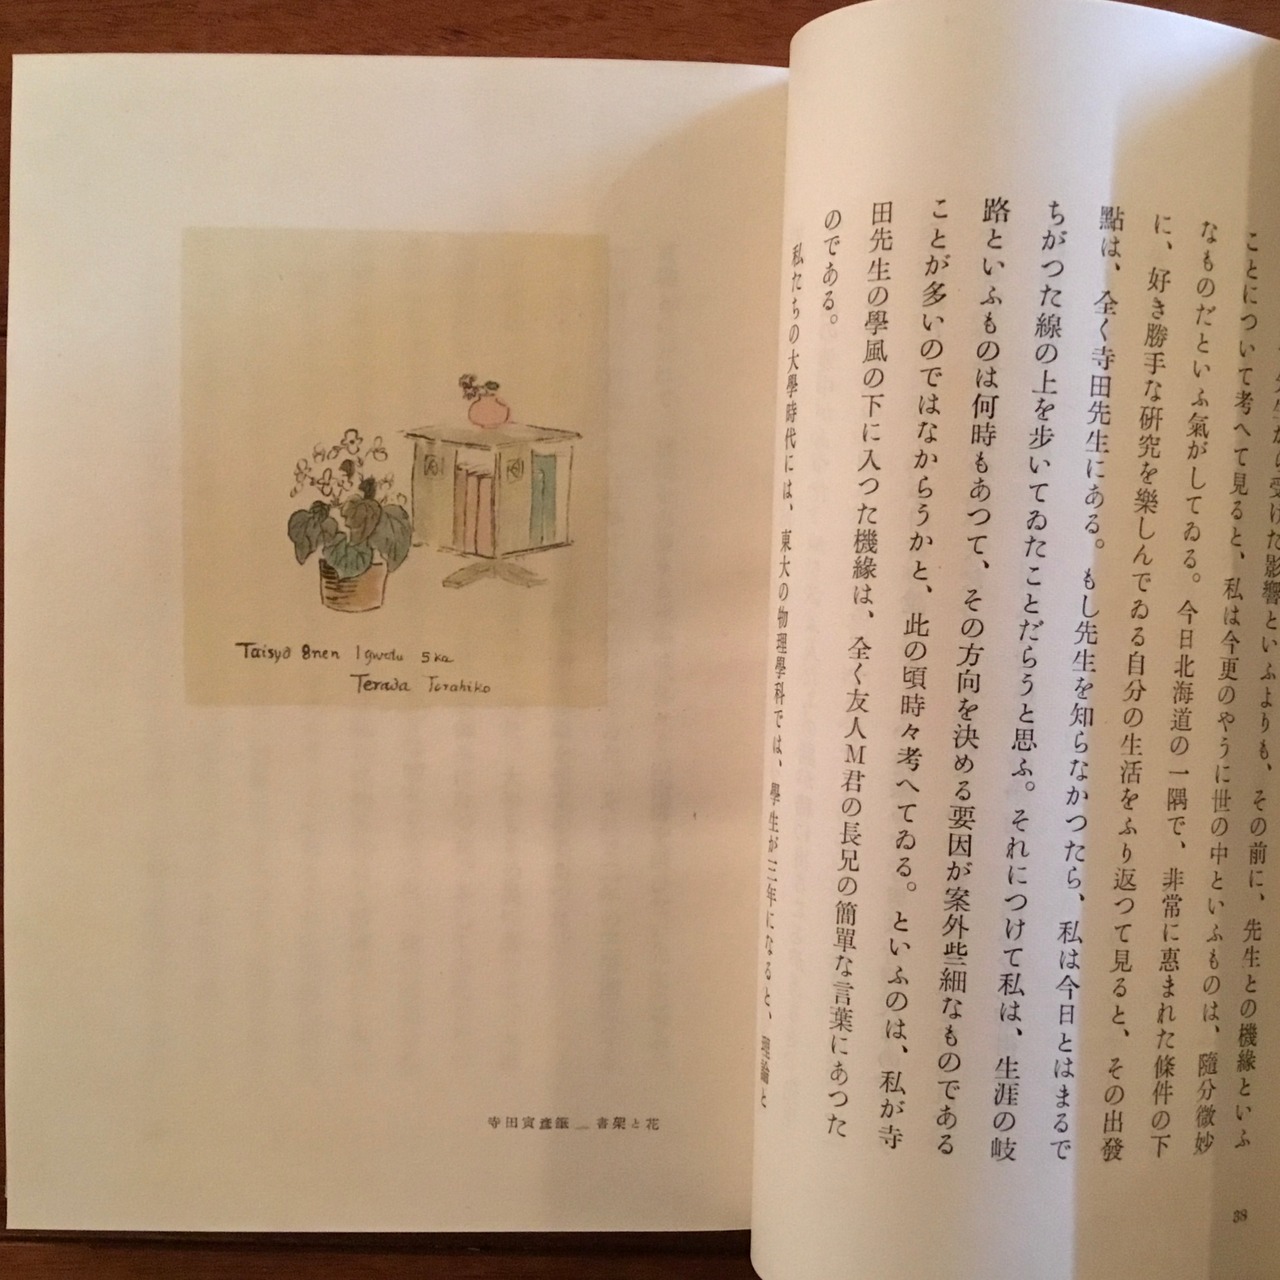 ことについて考へて見ると、私は今更のやうに世の中といふものは、隨分微妙
なものだといふ氣がしてゐる。今日北海道の一隅で、非常に惠まれた條件の下
に、好き勝手な硏究を樂しんでゐる自分の生活をふり返つて見ると、その出發
點は、全く寺田先生にある。もし先生を知らなかつたら、私は今日とはまるで
ちがつた線の上を歩いてゐたことだらうと思ふ。それにつけて私は、生涯の岐
路といふものは何時もあつて、その方向を決める要因が案外些細なものである
ことが多いのではなからうかと、此の頃時々考へてゐる。といふのは、私が寺
田先生の學風の下に入つた機緣は、全く友人M君の長兄の簡單な言葉にあつた
のである。
私たちの大學時代には、東大の物理學科では、學生が三年になると、理論と
38
Taisyô 8nen 1gwatu 5ka
Terada Torahiko
寺田寅彥筆 — 書架と花